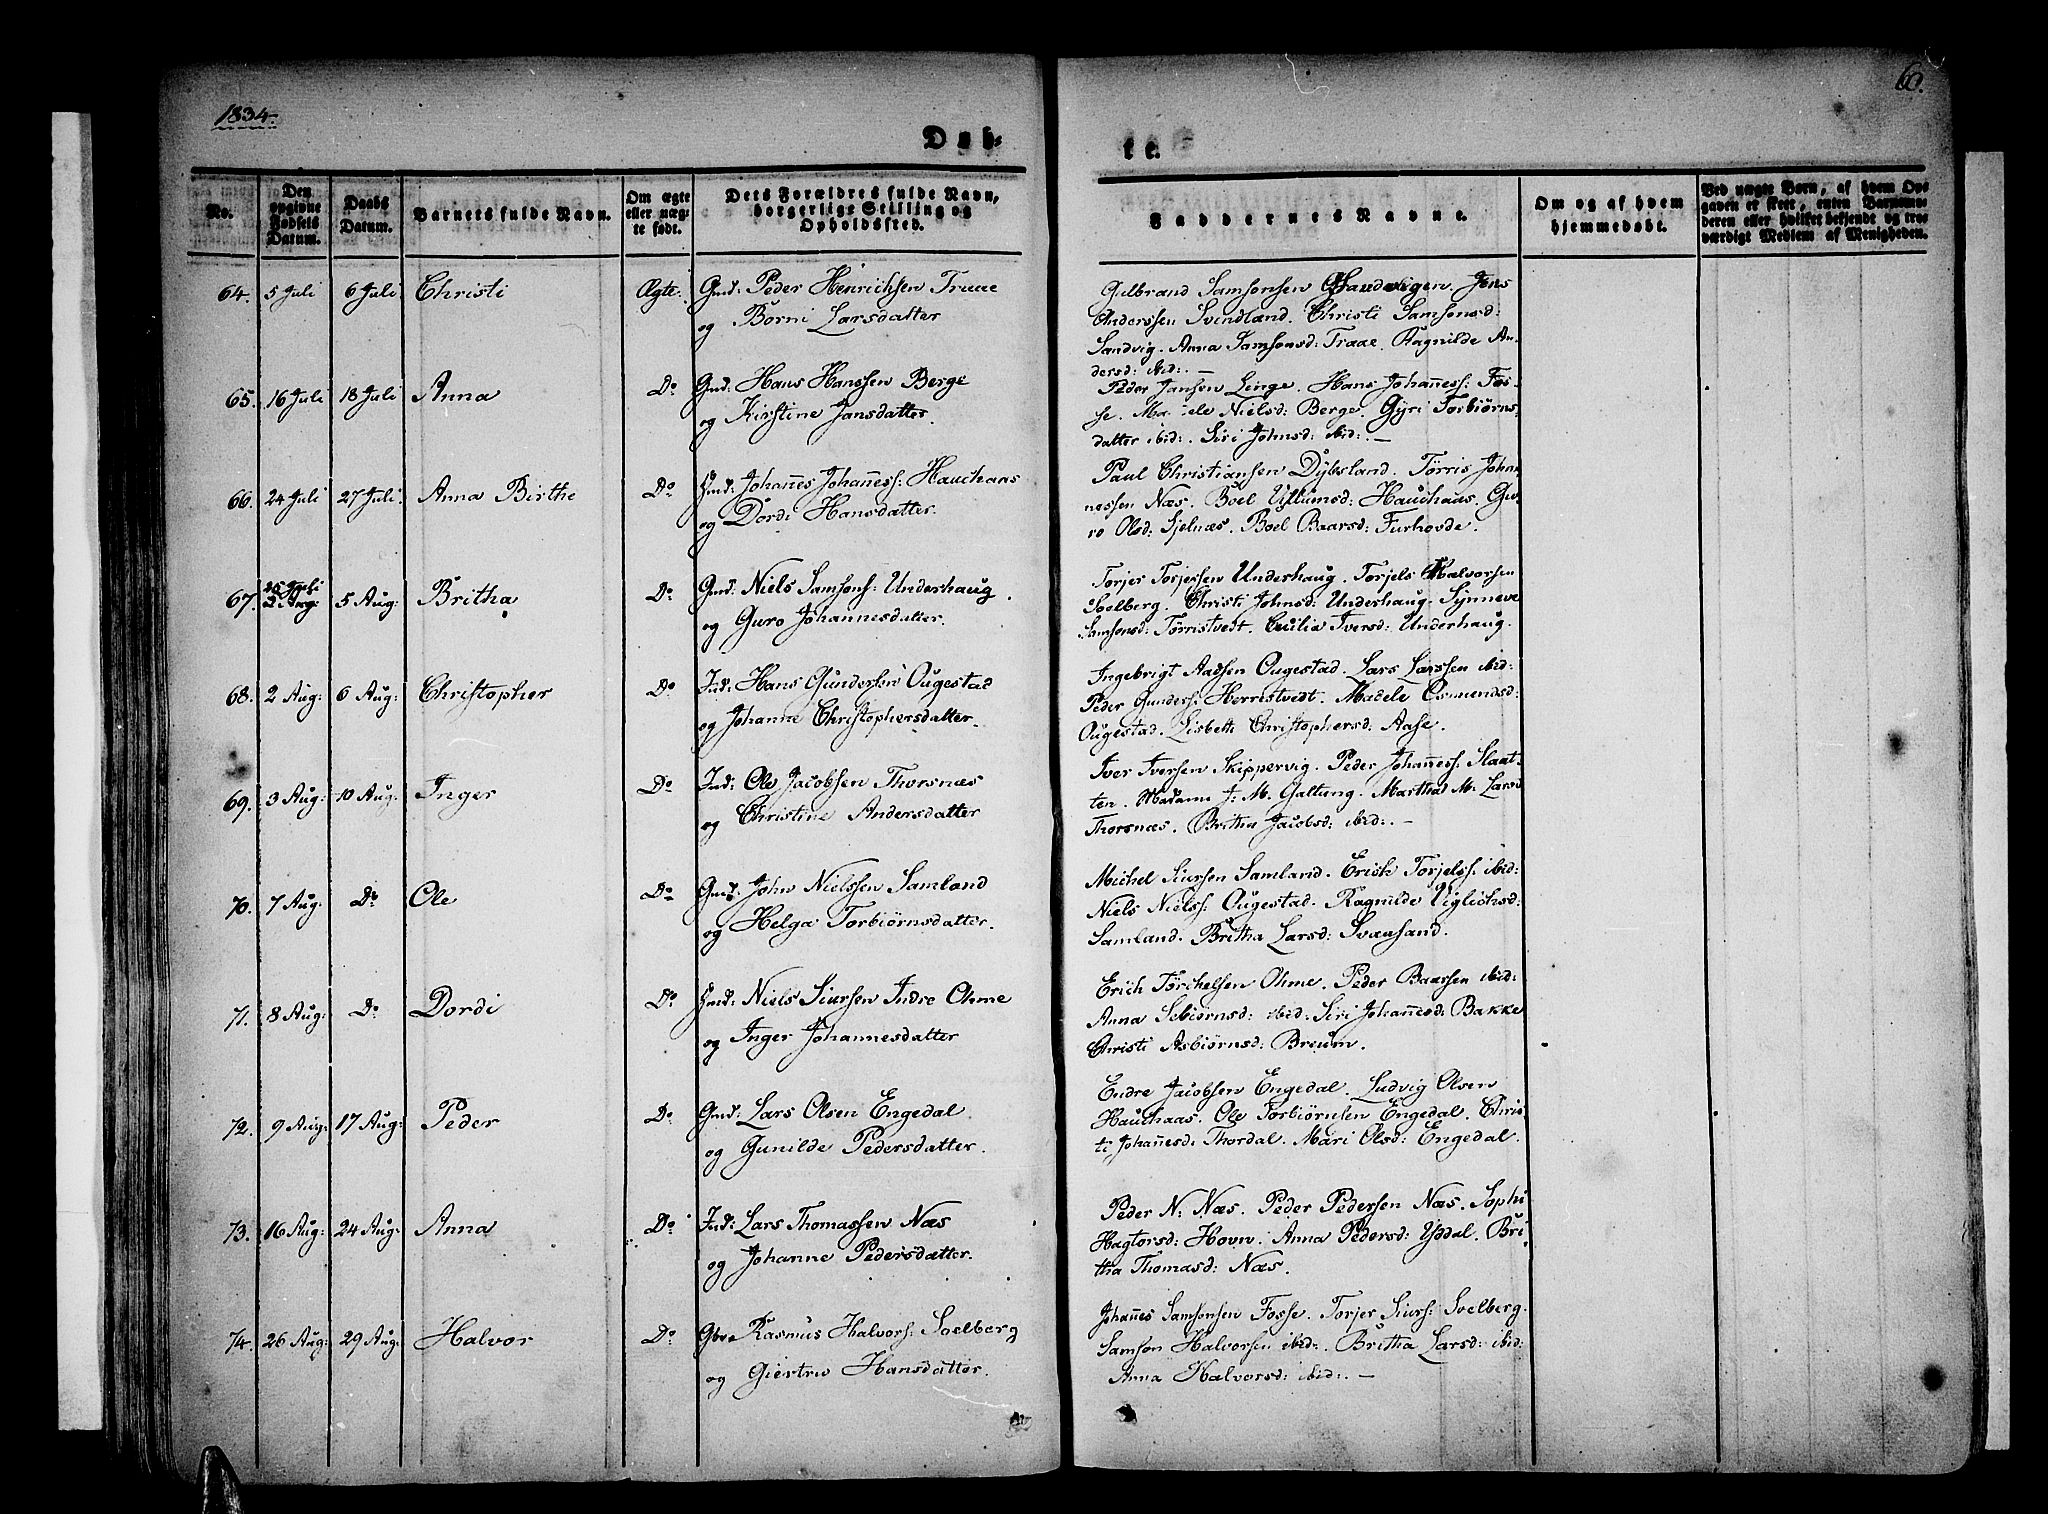 1834.
60.
Døb-
te.
No.
Den
opgivne
Fødsels
Datum.
Daabs
Datum.
Barnets fulde Navn.
Om ægte
eller uæg-
te født.
Dets Forældres fulde Navn,
borgerlige Stilling og
Opholdssted.
Faddernes Navne.
Om og af hvem
hjemmedøbt.
Ved uægte Børn, af hvem Op-
gaven er skeet, enten Barnemo-
deren eller hvilket bekjendt og tro-
værdigt Medlem af Menigheden.
64. 5 Juli 6 Juli Christi Ægte. Gmd: Peder Henrichsen Traae
og Børni Larsdatter
Gulbrand Samsonsen Sandvigen. Jens
Anderssen Svindland. Christi Samsonsd:
Sandvig. Anna Samsonsd: Traae. Ragnilde An-
dersd: ibid:. —
65. 16 Juli 18 Juli Anna Do Gmd: Hans Hanssen Berge
og Kirstine Jansdatter.
Peder Jansen Linge. Hans Johañess: Fos-
se. Nielsd: Berge. Gyri Torbiørns-
datter ibid:. Siri Johnsd: ibid:. —
66. 24 Juli 27 Juli. Anna Birthe Do Hmd: Johañes Johañess: Hauchaas
og Dordi Hansdatter.
Paul Christiansen Dybsland. Tørris Johan
nessen Næs. Boel Uttumsd: Hauchaas. Gu-
ro Olsd: Sjelnæs. Boel Baarsd: Furhovde.
67. 5 Aug: Britha Do Gmd: Niels Samsons: Underhaug.
og Guro Johannesdatter.
Torjer Torjersen Underhaug. Torjels Halvorsen
Soelberg. Christi Johnsd: Underhaug. Synneve
Samsonsd: Tørristvedt. Cecilia Iversd: Underhaug.
68. 2 Aug: 6 Aug: Christopher Do Ind: Hans Gundersen Ougestad
og Johanne Christophersdatter.
Ingebrigt Aadsen Ougestad. Lars Larssen ibid:
Peder Gunders: Herrestvedt. Madele Osmundsd:
Ougestad. Lisbeth Christophersd: Aase.
69. 3 Aug: 10 Aug: Inger Do Ind: Ole Jacobsen Thorsnæs
og Christine Andersdatter
Iver Iversen Skippervig. Peder Johañess: Slaat-
ten. Madame J: M. Galtung. Martha M. Larsd
Thorsnæs. Britha Jacobsd: ibid:. —
70. 7 Aug. Do Ole Do Gmd: John Nielssen Samland
og Helga Torbiørnsdatter.
Michel Siursen Samland. Erich Torjelss: ibid:
Niels Nielss: Ougestad. Ragnilde Viglichsd:
Samland. Britha Larsd: Svaasand.
71. 8 Aug: Do Dordi Do Hmd: Niels Siursen Indre Ohme
og Inger Johannesdatter
Erich Tørchelsen Ohme. Peder Baarsen ibid:
Anna Sebiørnsd: ibid: Siri Johañesd: Bakke
Christi Asbiørnsd: Breum.
72. 9 Aug: 17 Aug: Peder Do Gmd: Lars Olsen Engedal.
og Gunilde Pedersdatter.
Endre Jacobsen Engedal. Ludvig Olsen
Hauchaas. Ole Torbiørnsen Engedal. Chris
ti Johañesd: Thordal. Mari Olsd: Engedal.
73. 16 Aug: 24 Aug: Anna Do Ind: Lars Thomassen Næs
og Johanne Pedersdatter.
Peder N: Næs. Peder Pedersen Næs. Sophi
Hagtorsd: Hovn. Anna Pedersd: Yddal. Bri-
tha Thomasd: Næs.
74. 26 Aug: 29 Aug: Halvor Do Gbr Rasmus Halvors: Soelberg
og Giertru Hansdatter.
Johañes Samsonsen Fosse. Torjer Siurs: Soelberg.
Samson Halvorsen ibid: Britha Larsd: ibid:
Anna Halvorsd: ibid:. —